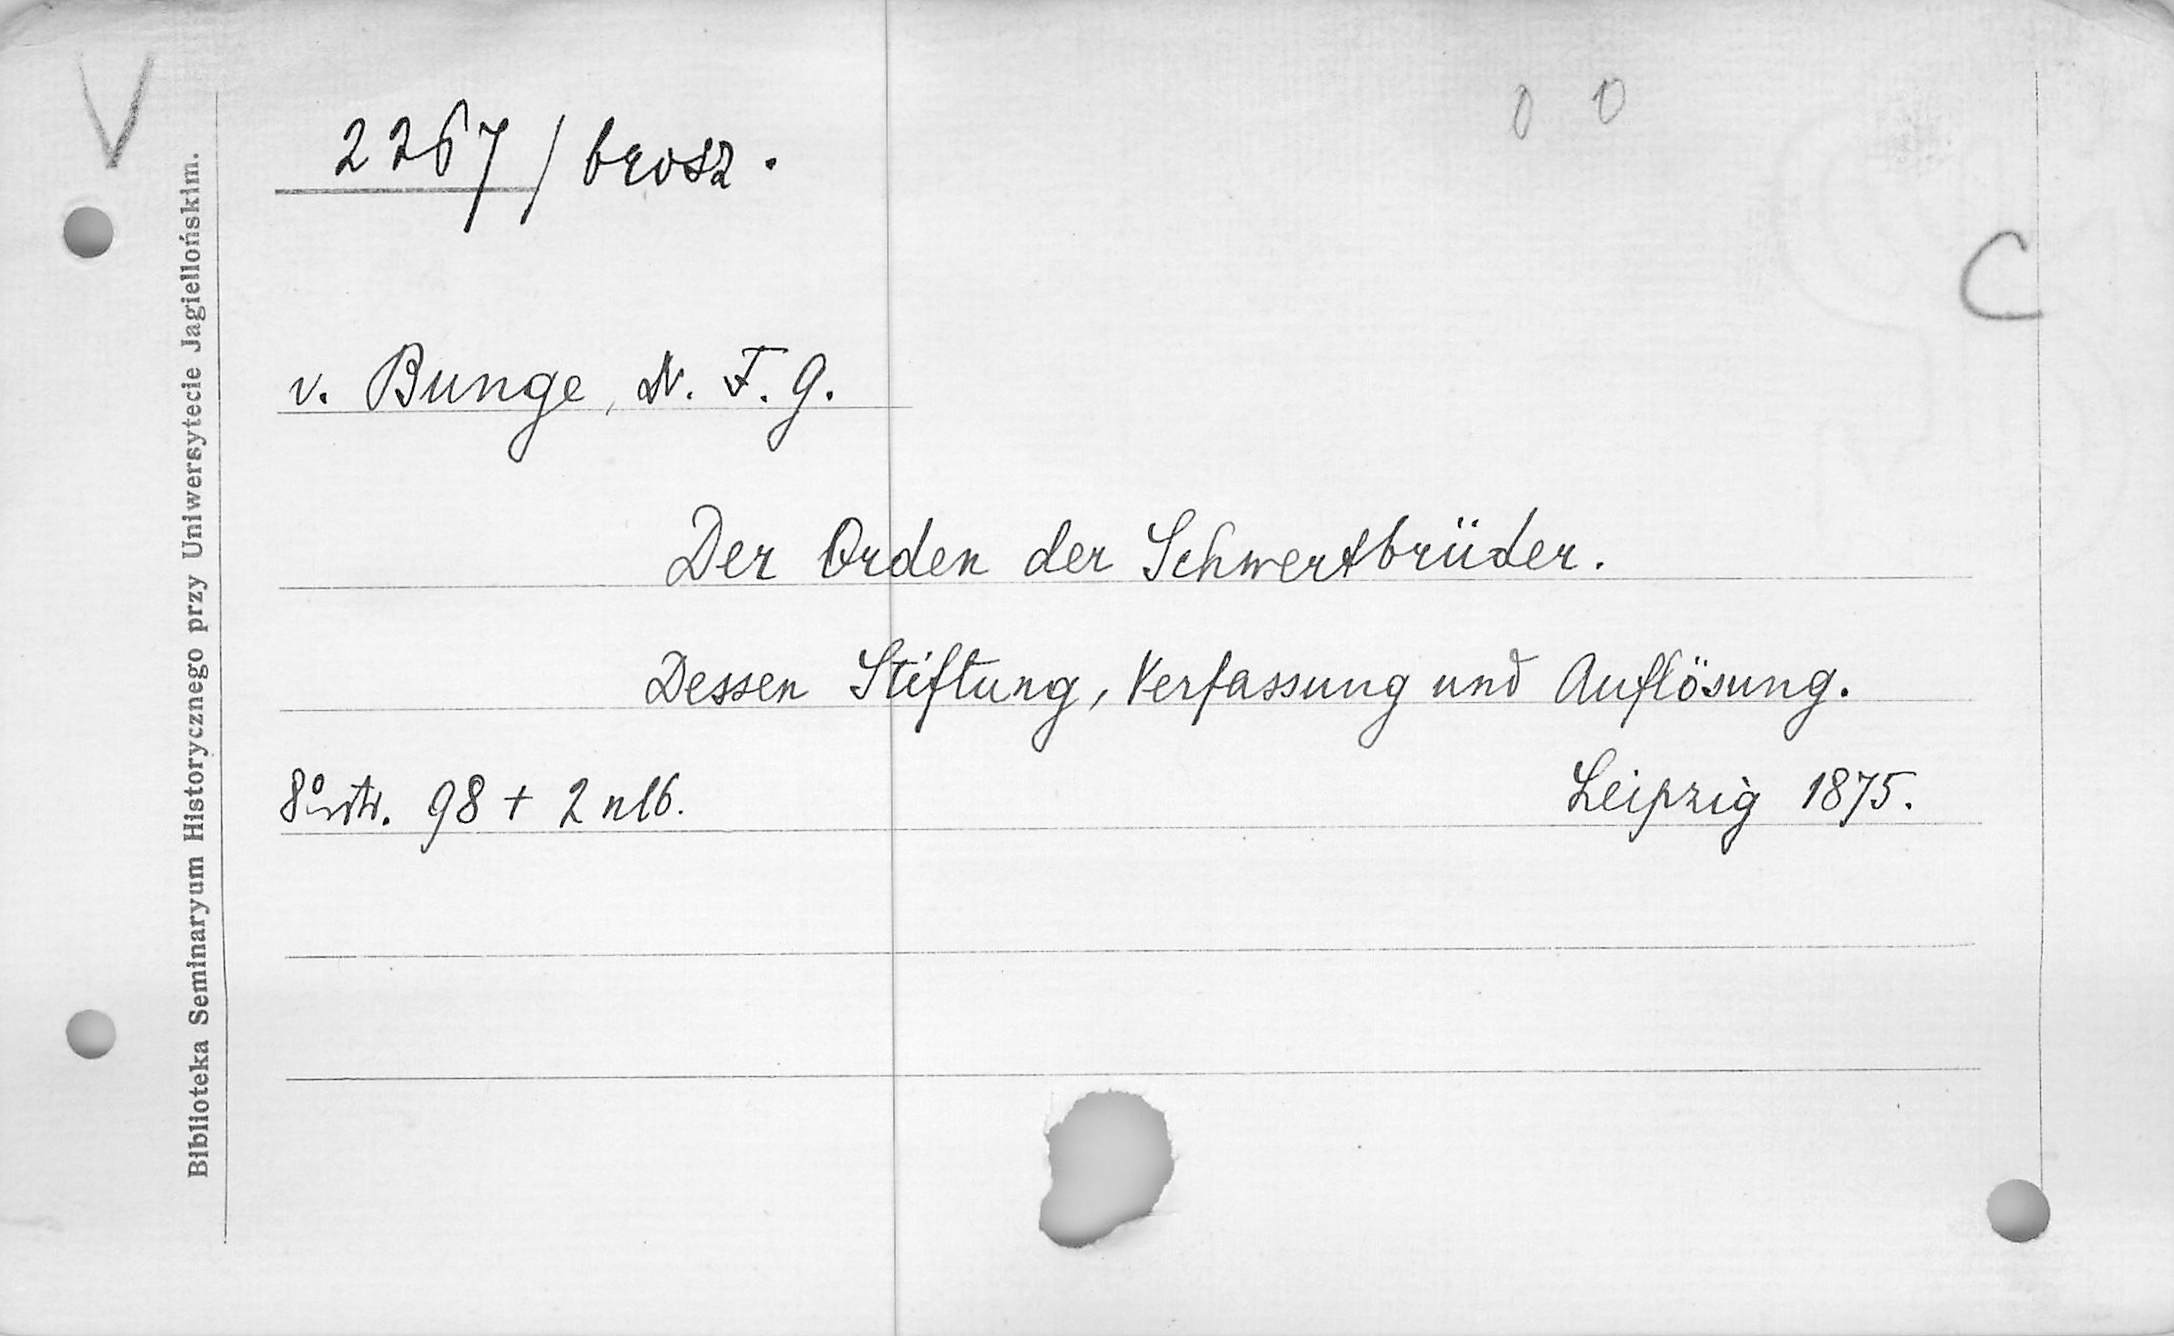 V
2267/brosz.
0 0
C
v. Bunge, Dr. F. G.
Der Orden der Schwertbrüder.
Dessen Stiftung, Verfassung und Auflösung.
8º str. 98 + 2 nlb. Leipzig 1875.
Biblioteka Seminaryum Historycznego przy Uniwersytecie Jagiellońskim.